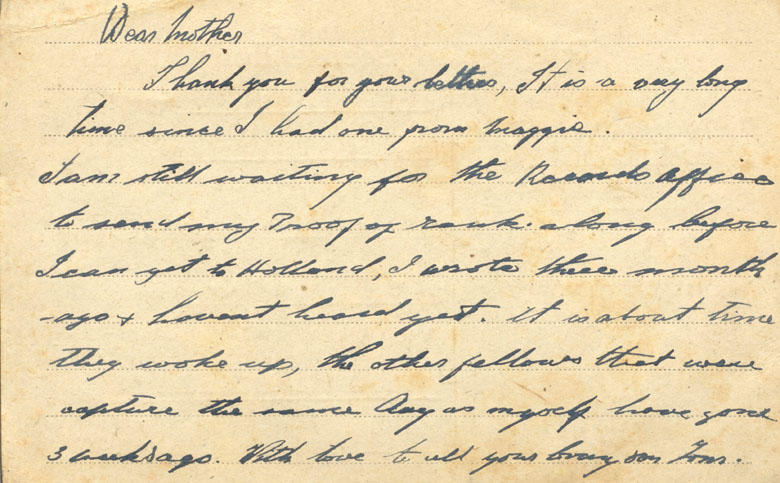 Dear Mother
Thank you for your letters, It is a very long
time since I had one from Maggie.
I am still waiting for the Records Office
to send my Proof of rank. along before
I can get to Holland, I wrote three month
ago & havent heard yet. it is about time
they woke up, the other fellows that were
capture the same day as myself have gone
3 weeks ago. With love to all your loving son Tom.